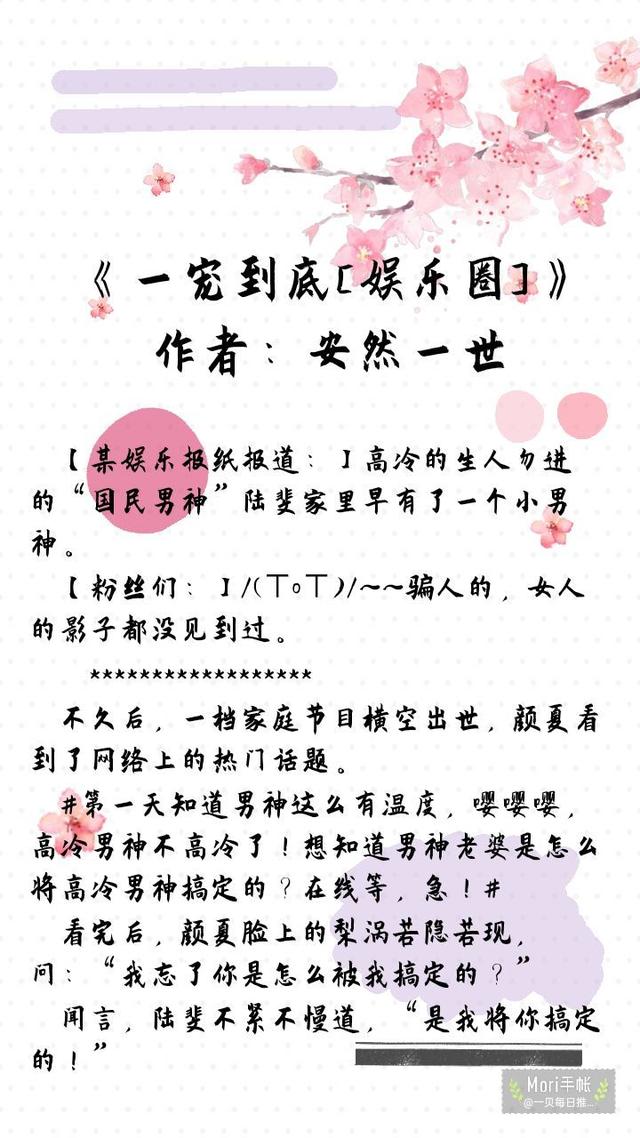 《一宠到底[娱乐圈]》
作者：安然一世
【某娱乐报纸报道：】高冷的生人勿进
的“国民男神”陆斐家里早有了一个小男
神。
【粉丝们：】/(ㄒoㄒ)/~~骗人的，女人
的影子都没见到过。
******************
不久后，一档家庭节目横空出世，颜夏看
到了网络上的热门话题。
#第一天知道男神这么有温度，嘤嘤嘤，
高冷男神不高冷了！想知道男神老婆是怎么
将高冷男神搞定的？在线等，急！#
看完后，颜夏脸上的梨涡若隐若现，
问：“我忘了你是怎么被我搞定的？”
闻言，陆斐不紧不慢道，“是我将你搞定
的！”
Mori手帐
@一贝每日推...